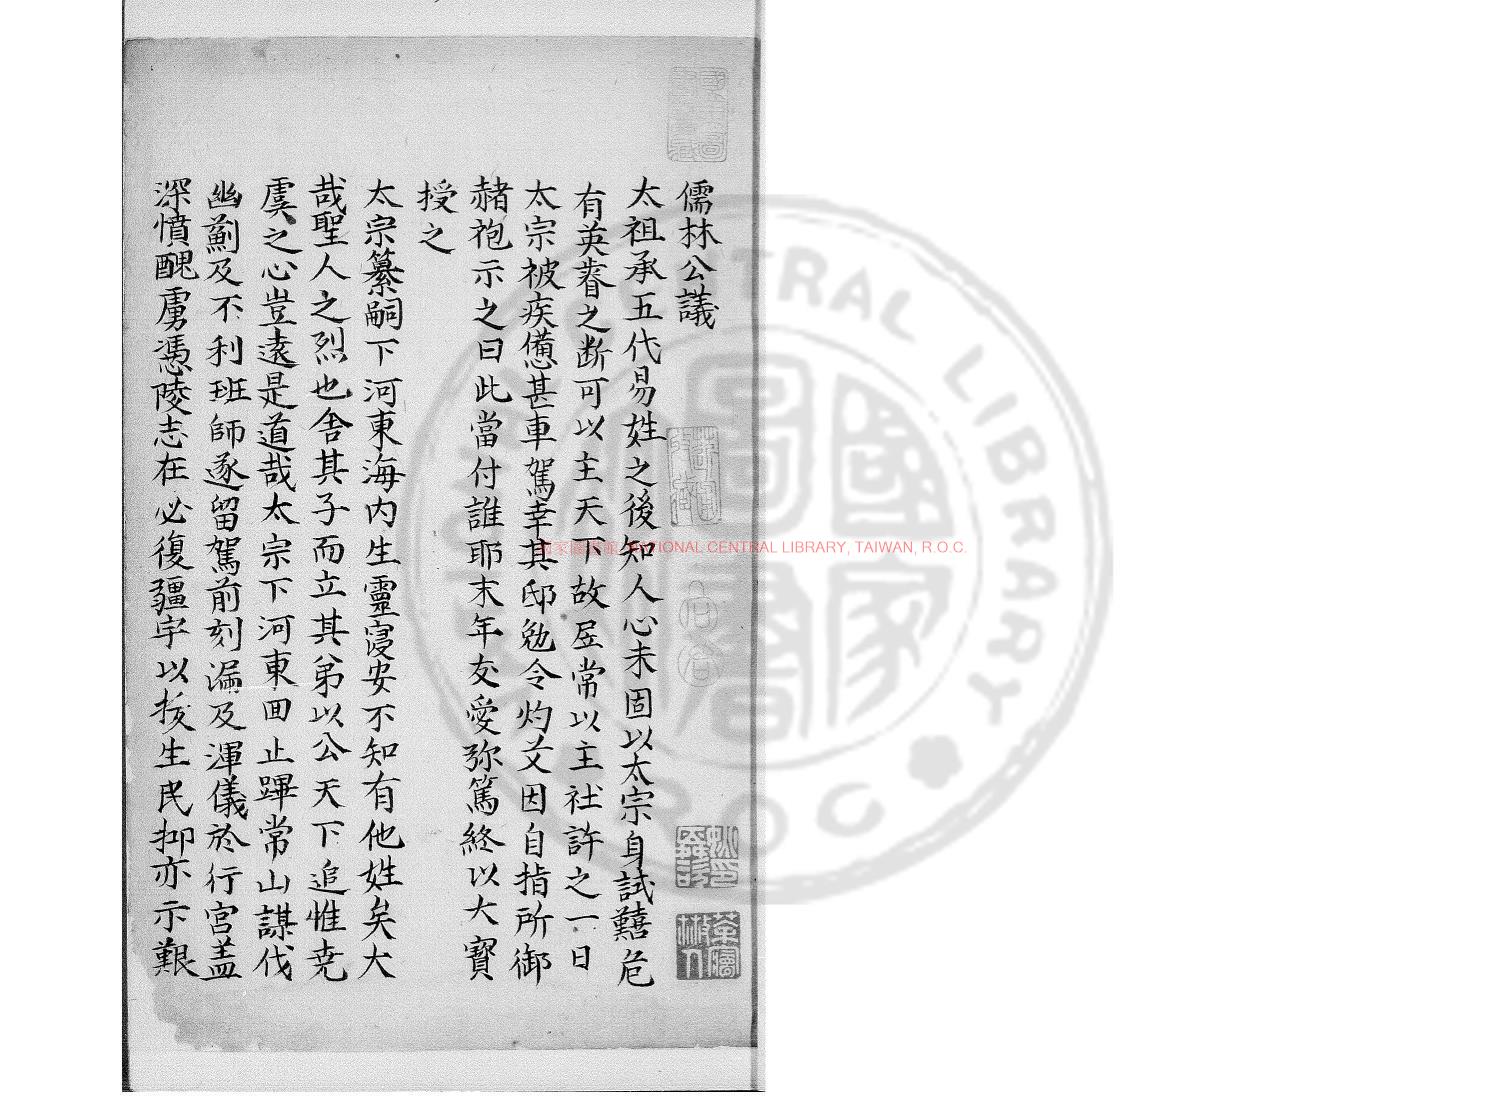 儒林公議
太祖承五代易姓之後知人心未固以太宗身試囏危
有英睿之断可以主天下故居常以主社許之一日
太宗被疾憊甚車駕幸其邸勉令灼艾因自指所御
赭袍示之曰此當付誰耶末年友愛弥篤終以大寳
授之
太宗纂嗣下河東海内生靈寖安不知有他姓矣大
哉聖人之烈也舎其子而立其弟以公天下追惟尭
虞之心豈遠是道哉太宗下河東回止蹕常山謀伐
幽薊及不利班師遂留駕前刻漏及渾儀於行宮盖
深憤醜虜憑陵志在必復疆宇以拔生民抑亦示艱
國家圖書館 NATIONAL CENTRAL LIBRARY, TAIWAN, R.O.C.
NATIONAL CENTRAL LIBRARY
ROC
國家圖書